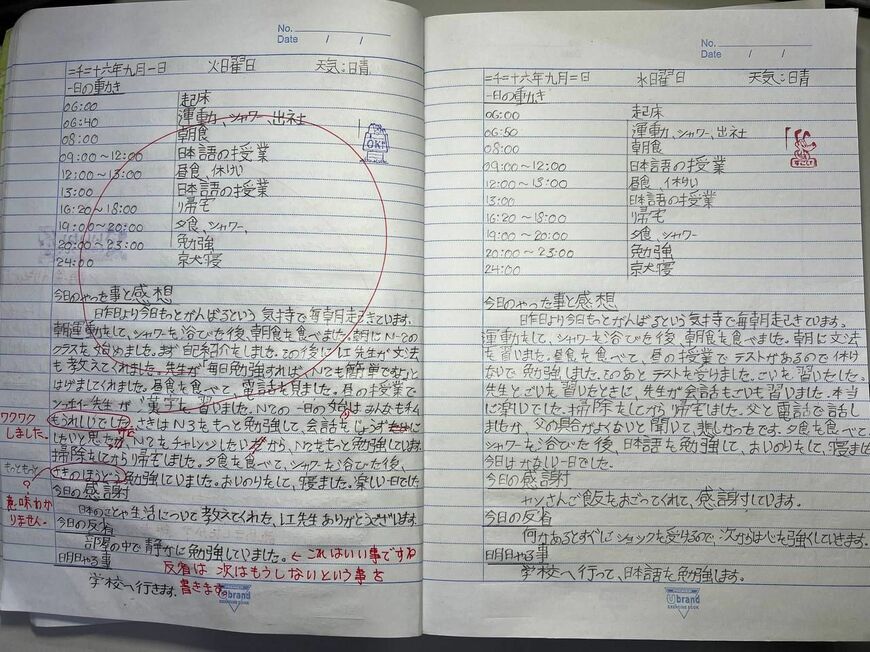 No.
Date / /
二千二十六年九月一日 火曜日 天気:晴
一日の動き
06:00 起床
06:40 運動、シャワー、出社
08:00 朝食
09:00〜12:00 日本語の授業
12:00〜13:00 昼食、休けい
13:00 日本語の授業
16:20〜18:00 帰宅
19:00〜20:00 夕食、シャワー、
20:00〜23:00 勉強
24:00 就寝
OK!
今日のやった事と感想
昨日より今日もっとがんばるという気持で毎朝起きています。
朝運動をして、シャワーを浴びた後、朝食を食べました。朝にN-2の
クラスを始めました。まず自己紹介をしました。その後に、エ先生が文法
も教えてくれました。先生が「毎日勉強すれば、N2も簡単です」と
はげましてくれました。昼食を食べて、電話を見ました。昼の授業で
先生が漢字を習いました。N2の一日の始はみんなも
ワクワクしました。
もうれしいでした。さきはN3をもっと勉強して、会話を
したいと思たが、N2をチャレンジしたいから、N2をもっと勉強しています。
掃除をしてから帰宅しました。夕食を食べて、シャワーを浴びた後、
もっともっと
さきのほうとう勉強していました。おいのりをして、寝ました。楽しい一日でした
?
意味わかりません。
今日の感謝
日本のことや生活について教えてくれた、エ先生ありがとうございます。
今日の反省
部屋の中で静かに勉強していました。← これはいい事ですね
反省は次はもうしないという事を書きます。
明日やる事
学校へ行きます。
Ubrand
EXERCISE BOOK
No.
Date / /
二千二十六年九月二日 水曜日 天気:晴
一日の動き
06:00 起床
06:50 運動、シャワー、出社
08:00 朝食
09:00〜12:00 日本語の授業
12:00〜13:00 昼食、休けい
13:00 日本語の授業
16:20〜18:00 帰宅
19:00〜20:00 夕食、シャワー
20:00〜23:00 勉強
24:00 就寝
今日のやった事と感想
昨日より今日もっとがんばるという気持で毎朝起きています。
運動をして、シャワーを浴びた後、朝食を食べました。朝に文法
を習いました。昼食を食べて、昼の授業でテストがあるので休け
ないで勉強しました。そのあとテストを受りました。ごいを習いたした。
先生とごいを習いたときに、先生が会話もごいも習いました。本当
に楽しいでした。掃除をしてから帰宅しました。父と電話で話し
ましたか、父の具合がよくないと聞いて、悲しかったです。夕食を食べて、
シャワーを浴びた後、日本語を勉強して、おいのりをして、寝ました
今日はかなしい一日でした。
今日の感謝
ヤンさんご飯をおごってくれて、感謝しています。
今日の反省
何かあるとすぐにショックを受けるので、次からは心を強くしていきます。
明日やる事
学校へ行って、日本語を勉強します。
Ubrand
EXERCISE BOOK